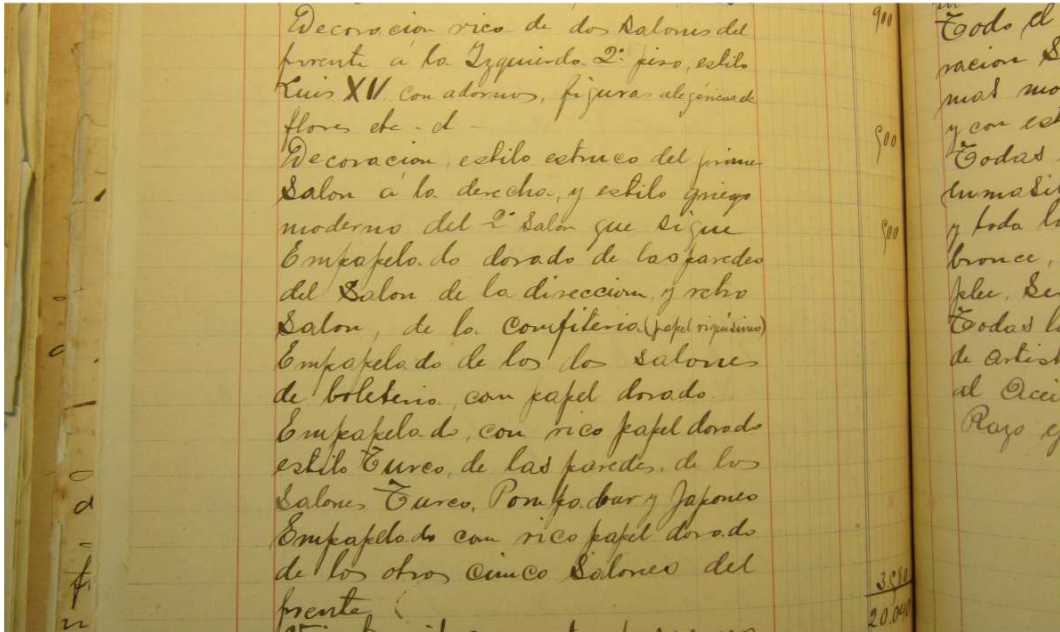 Decoracion rico de dos Salones del 900
frente á la Izquierda 2º piso, estilo
Luis XV con adornos, figuras alegóricas de
flores etc - d -
Decoracion, estilo estruco del primer 500
Salon á la derecha, y estilo griego
moderno del 2º Salon que sigue 500
Empapelado dorado de las paredes
del Salon de la direccion, y retro
Salon, de la Confiteria (papel riquísimo)
Empapelado de los dos Salones
de boleteria, con papel dorado.
Empapelado, con rico papel dorado
estilo Turco, de las paredes, de los
Salones Turco, Pompadour y Japones
Empapelado con rico papel dorado
de los otros Cinco Salones del
frente
Todo el
racion
mas mo
y con est
Todas
y toda l
bronce,
Todas l
de artist
al
Rayo